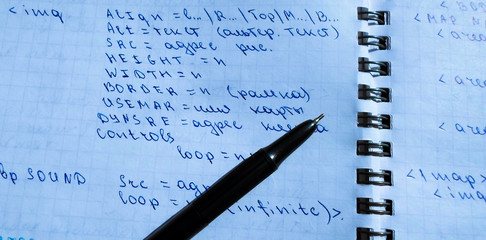 <img ALIGN = L...|R...|Top|M...|B...
ALT = текст (альтер. текст)
SRC = адрес рис.
HEIGHT = n
WIDTH = n
BORDER = n (рамка)
USEMAR = имя карты
DYNSRC = адрес клипа
Controls
loop = n
SOUND src = адр
loop = (infinite)>.
<MAP NA
<area
<area
<area
</map>
<img